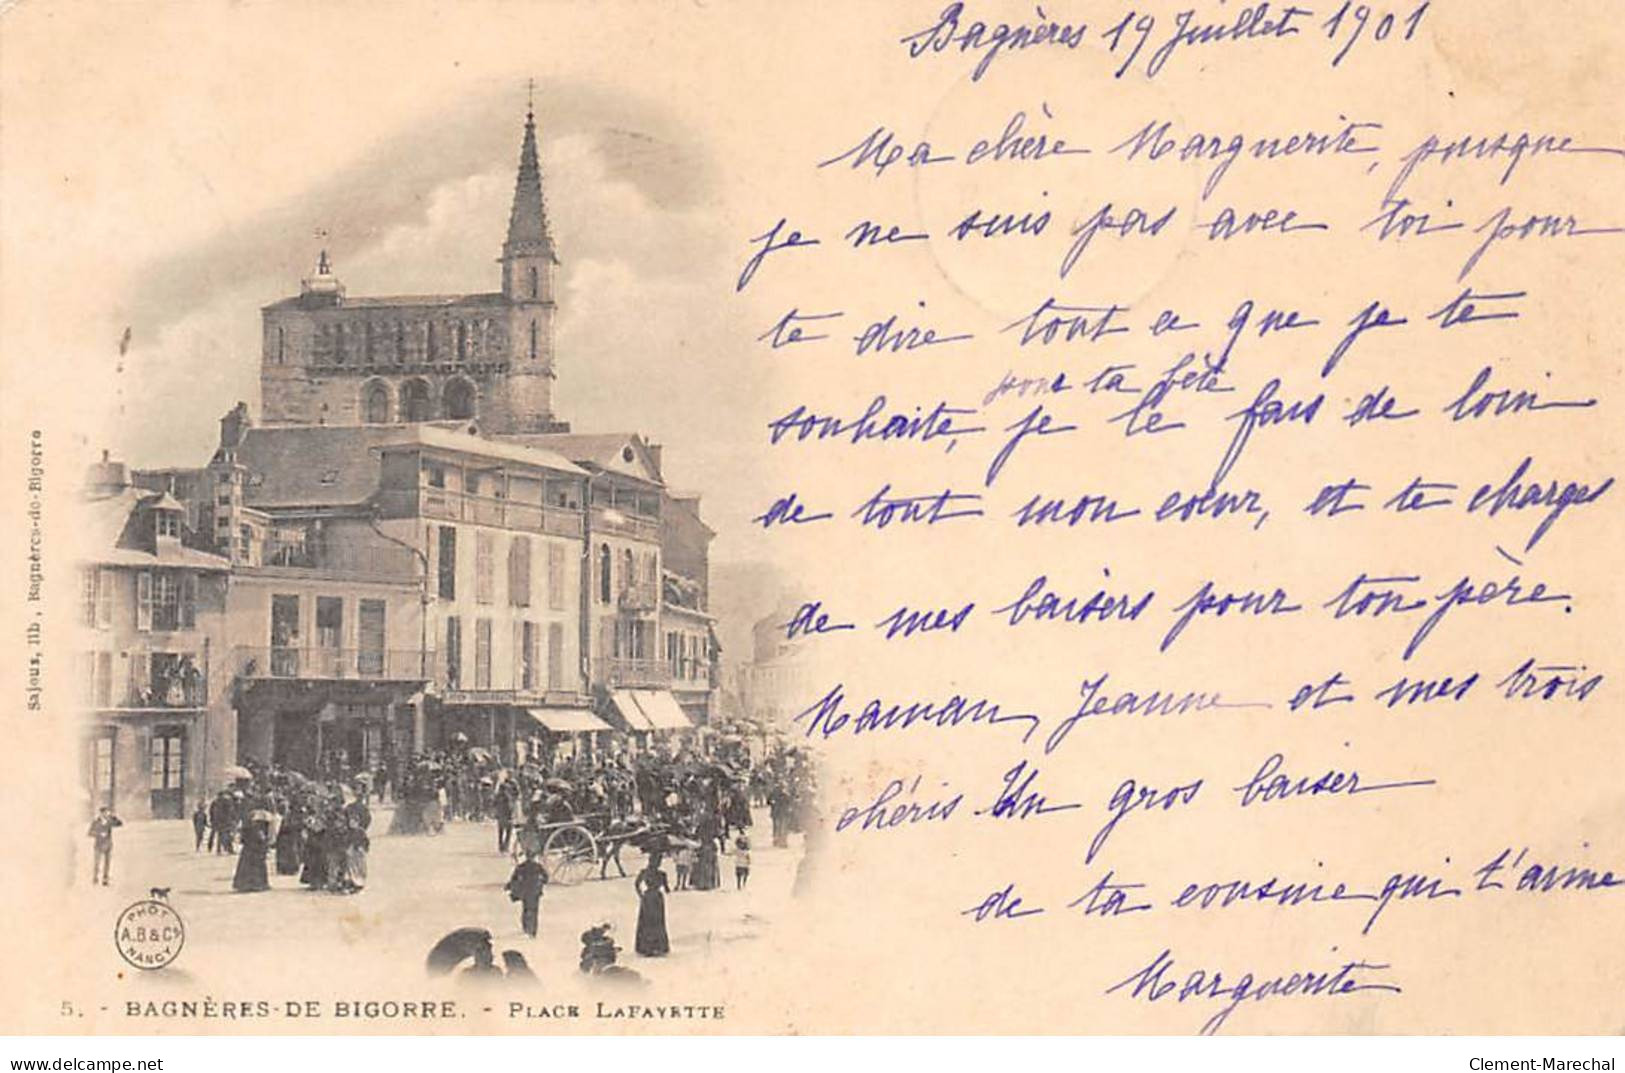 Bagnères 19 Juillet 1901
Ma chère Marguerite, puisque
je ne suis pas avec toi pour
te dire tout ce que je te
pour ta fête
souhaite, je le fais de loin
de tout mon cœur, et te charges
de mes baisers pour ton père.
Maman, Jeanne et mes trois
chéris Un gros baiser
de ta cousine qui t'aime
Marguerite
Sajous, lib, Bagnères-de-Bigorre
PHOT.
A.B & Cº
NANCY
5. - BAGNÈRES-DE BIGORRE. - PLACE LAFAYETTE
www.delcampe.net
Clement-Marechal